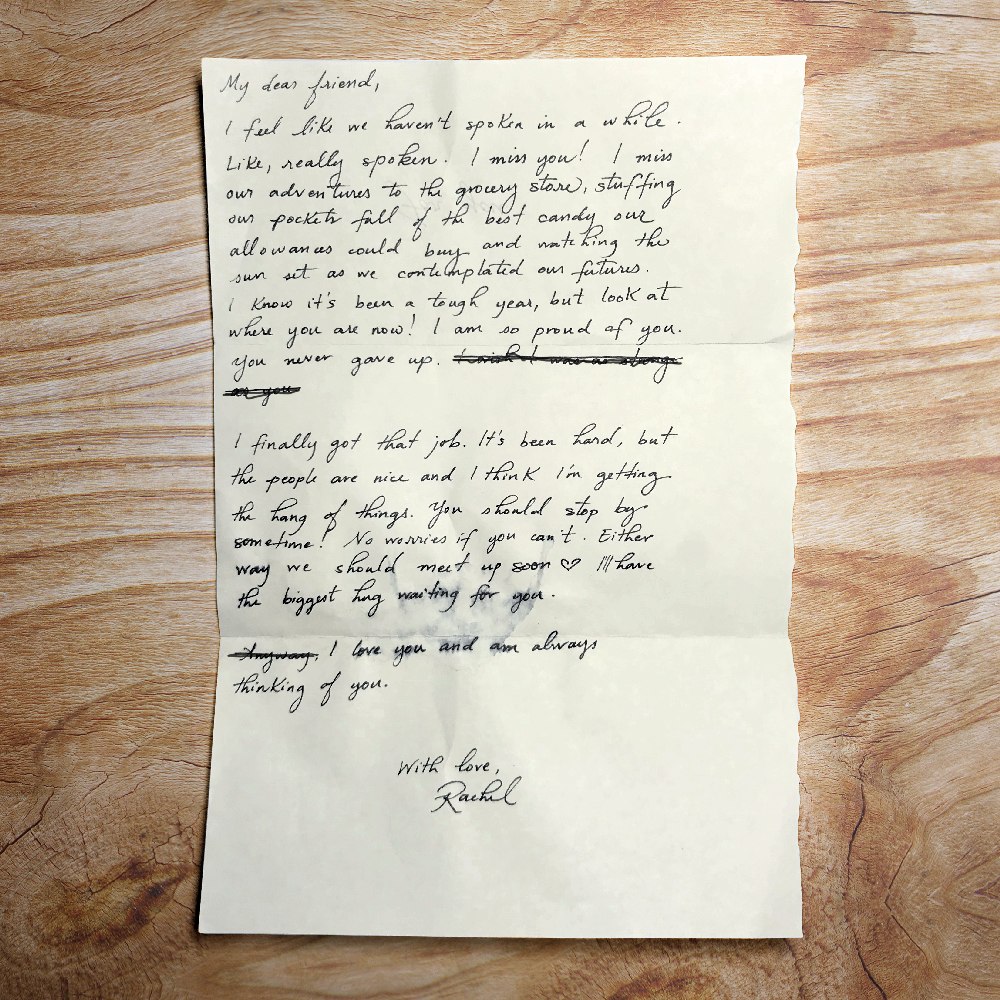 My dear friend,
I feel like we haven't spoken in a while.
Like, really spoken. I miss you! I miss
our adventures to the grocery store, stuffing
our pockets full of the best candy our
allowances could buy and watching the
sun set as we contemplated our futures.
I know it's been a tough year, but look at
where you are now! I am so proud of you.
You never gave up. I wish I was as strong
as you
I finally got that job. It's been hard, but
the people are nice and I think I'm getting
the hang of things. You should stop by
sometime! No worries if you can't. Either
way we should meet up soon ♡ I'll have
the biggest hug waiting for you.
Anyway, I love you and am always
thinking of you.
With love,
Rachel